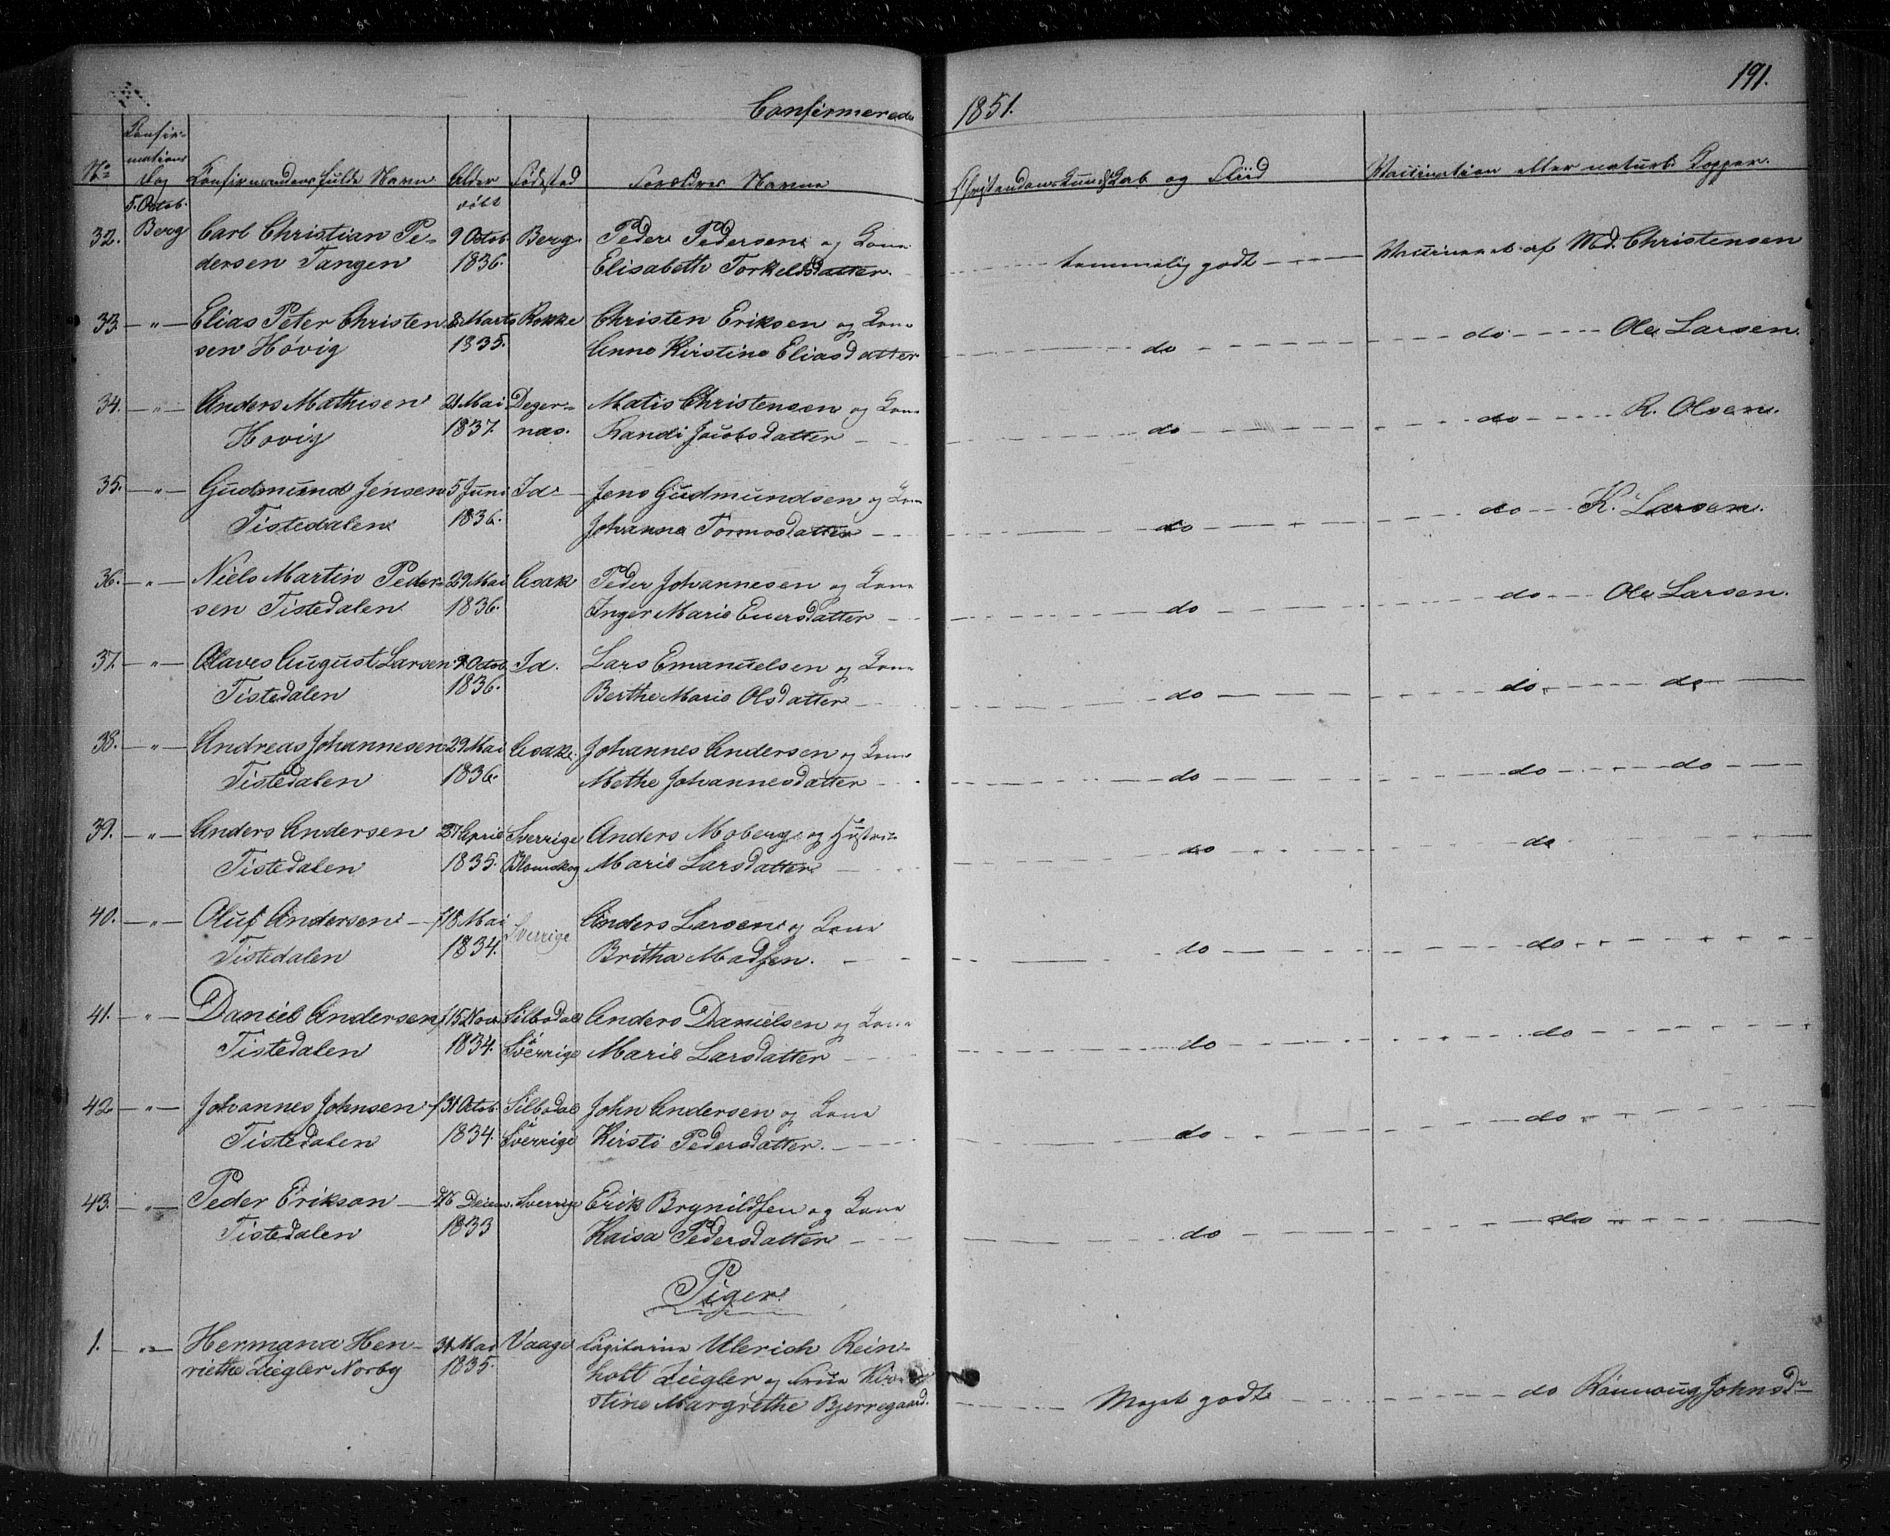 191.
Confirmerede 1851.
No Confirmations Dag Confirmandens fulde Navn Alder døbt Fødested Forældres Navne Christendoms Kundskab og Fliid Vaccination eller naturl. Kopper.
5. Octob.
32. Berg Carl Christian Pe- 9 Octob. Berg. Peder Pedersen og Kone temmelig godt Vaccineret af Md. Christensen
dersen Tangen 1836. Elisabeth Torkeldsdatter.
33. " Elias Peter Christen 8 Marts Rokke Christen Eriksen og Kone do do Ole Larsen.
sen Høvig 1835. Anne Kirstine Eliasdatter
34. " Anders Mathisen 21 Mai Deger- Matis Christensen og Kone do do R. Olsen.
Høvig 1837. næs. Randi Jacobsdatter
35. " Gudmund Jensen 5 Juni Id Jens Gudmundsen og Kone do do K. Larsen.
Tistedalen 1836. Johanna Tormosdatter
36. " Niels Martin Peder- 29 Mai Asak Peder Johannesen og Kone do do Ole Larsen.
sen Tistedalen 1836. Inger Marie Euersdatter
37. " Olaves August Larsen 9 Octob. Id. Lars Emanuelsen og Kone do do do
Tistedalen 1836. Berthe Marie Olsdatter
38. " Andreas Johannesen 29 Mai Asak Johannes Andersen og Kone do do do
Tistedalen 1836. Methe Johannesdatter
39. " Anders Andersen 27 April Sverrige Anders Moberg og Hustru do do
Tistedalen 1835. Blomskog Marie Larsdatter
40. " Oluf Andersen f 18 Mai Sverrige Anders Larsen og Kone do do
Tistedalen 1834. Britha Madsen.
41. " Daniel Andersen f 15 Nov. Silbodal Anders Danielsen og Kone do do
Tistedalen 1834. Sverrige Marie Larsdatter
42 " Johannes Johnsen f 31 Octob. Silbodal John Andersen og Kone do do
Tistedalen 1834. Sverrige Kirsti Pedersdatter.
43. " Peder Erikson 26 Decem. Sverrige Erik Brynildsen og Kone do do
Tistedalen 1833 Kaisa Pedersdatter
Piger
1. " Hermana Hen- 31 Mai Vaage Capitaine Ulerich Rein- Meget godt do Rønnoug Johnsd.
riethe Ziegler Norby 1835. holt Ziegler og Frue Kir-
stine Margrethe Bjerregaard.